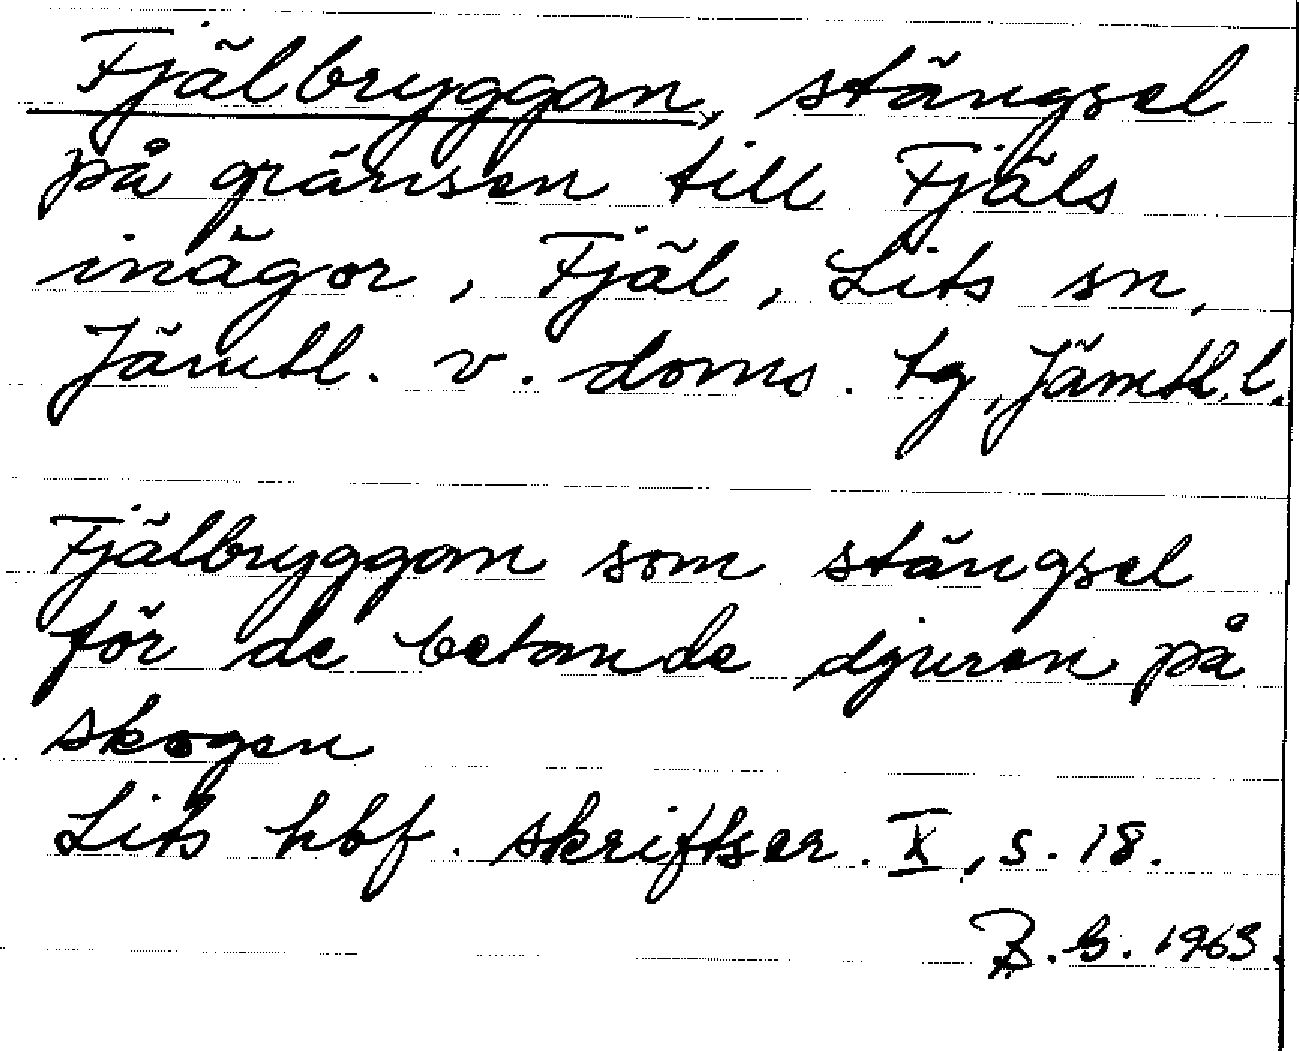 Fjälbryggan, stängsel
på gränsen till Fjäls
inägor, Fjäl, Lits sn,
Jämtl. v. doms. tg, Jämtl. l.
Fjälbryggan som stängsel
för de betande djuren på
skogen
Lits hbf. skriftser. X, s. 18.
B. G. 1963.